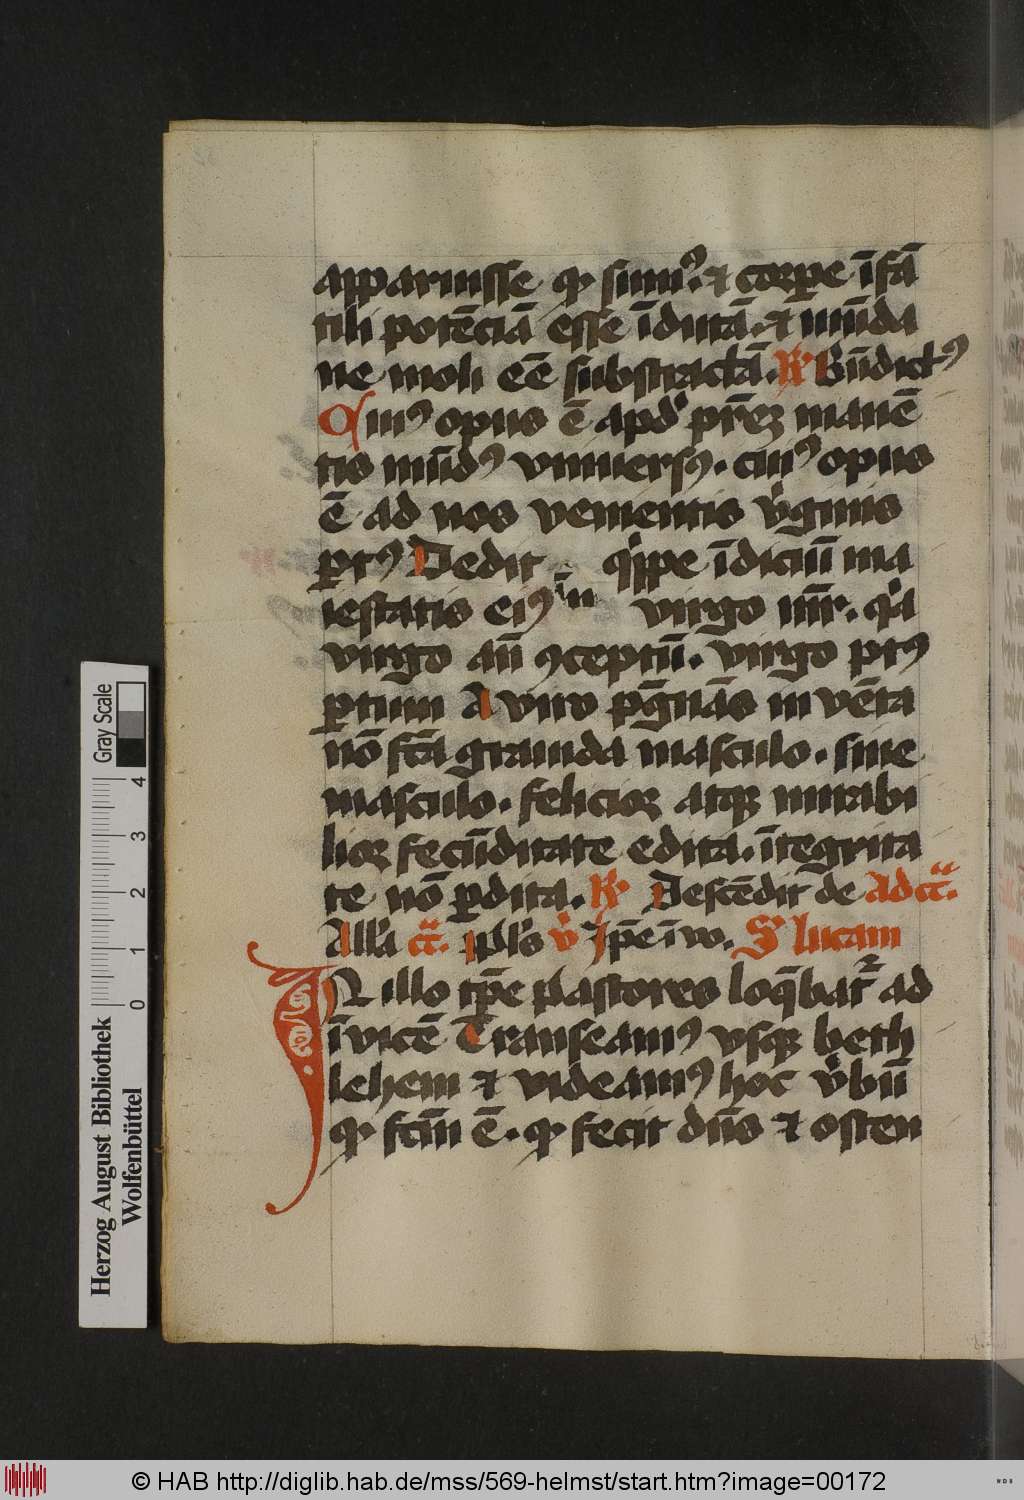 apparuisse qͥ simꝰ. ⁊ corꝑe īfā
tili potēciā esse īdutā. ⁊ mūda
ne moli eē substractā. ℟ Bn̄dictꝰ
Cuiꝰ opus ē apd' pr̄eꝫ manē
tis mūdꝰ vniuersꝰ. cuiꝰ opus
ē ad nos venientis vͥginis
ꝑtꝰ Dedit qͥppe īdiciū ma
iestatis eiꝰ in virgo mr̄. qͥa
virgo an̄ ꝯceptū. virgo pꝰ
ꝑtum A viro p̄gnās in vēta
nō fc̄a grauida masculo. sine
masculo. felicior atqꝫ mirabi
lior fecūditate edita. ītegrita
te nō ꝑdita. ℟ Descēdit de Ad cᷓ.
All'a cᷓ. ppl's v̾ Ip̄e īvo. S' lucam
IN illo tp̄e Pastores loq̄bar̄ᷣ ad
īvicē Transeamꝰ vsqꝫ beth
lehem ⁊ videamꝰ hoc v̾bū
qͥ fc̄m ē. qͥ fecit dn̄s ⁊ osten
Herzog August Bibliothek
Wolfenbüttel
Gray Scale
0 1 2 3 4
© HAB http://diglib.hab.de/mss/569-helmst/start.htm?image=00172